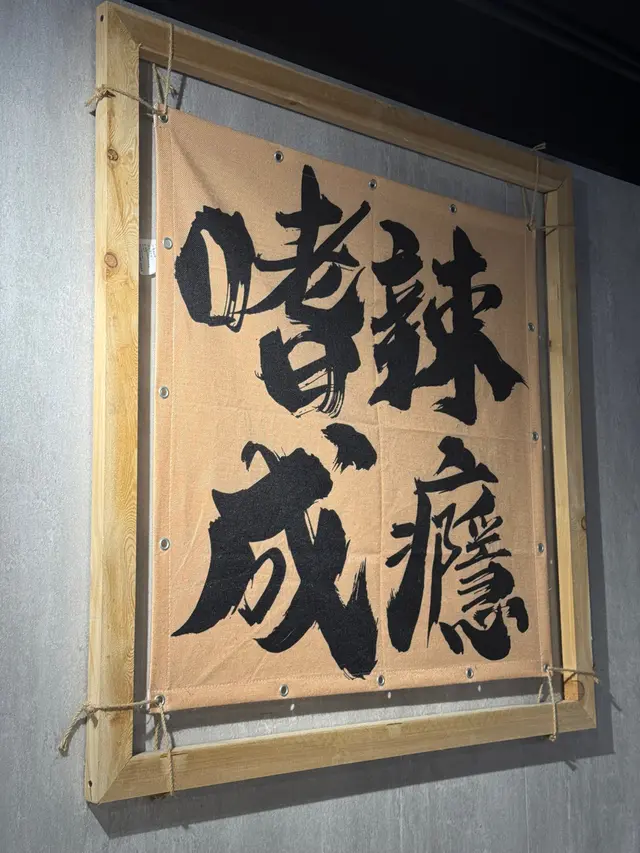 嗜辣
成癮